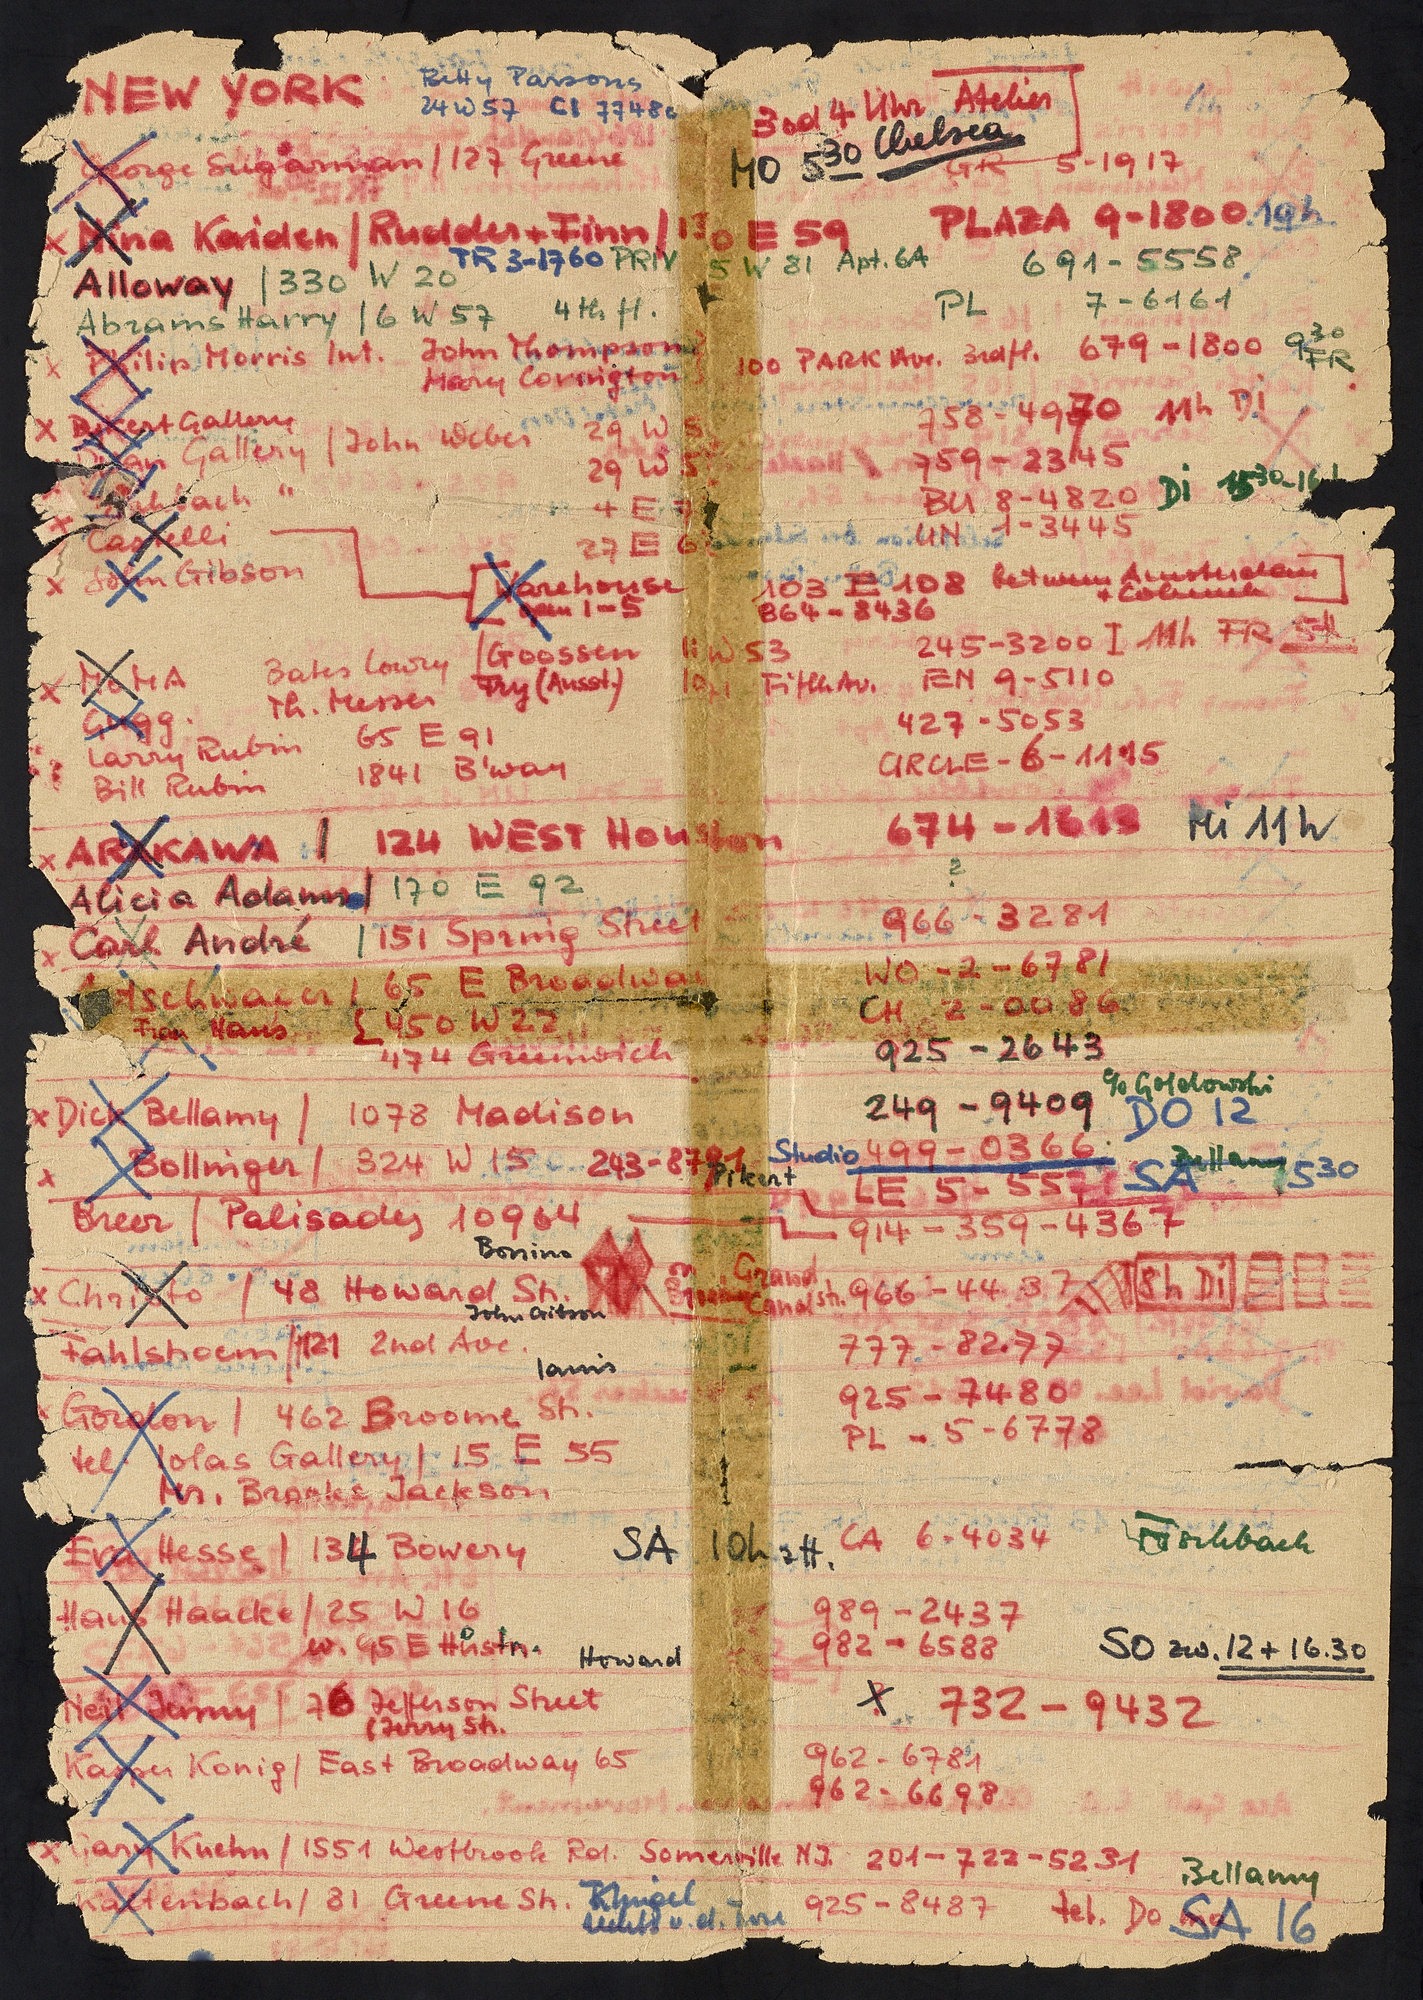 NEW YORK Betty Parsons 3 od 4 Uhr Atelier
24 W 57 CI 77480 MO 5 30 Chelsea
George Sugarman / 127 Greene GR 5-1917
x Nina Kaiden / Ruder + Finn / E 59 PLAZA 9-1800 19h
TR 3-1760 PRIV 5 W 81 Apt. 6A 691-5558
Alloway / 330 W 20
Abrams Harry / 6 W 57 4th fl. PL 7-6161
x Philip Morris Int. John Thompson 100 PARK Ave. 3rd fl. 679-1800 9 30 FR
Mary Covington
x Dwan Gallery / John Weber 29 W 758-4970 11h Di
29 W 759-2345
x Fischbach " 4 E 7 BU 8-4820 Di 15 30-16h
Castelli 27 E 6 UN 1-3445
x John Gibson
Warehouse 103 E 108 between Amsterdam + Columbus
1-5 864-8436
x MOMA Bates Lowry / Goossen 11 W 53 245-3200 I 11h FR
Gugg. Th. Messer Fry (Ausst.) Fifth Av. EN 9-5110
Larry Rubin 65 E 91 427-5053
Bill Rubin 1841 B'way CIRCLE-6-1115
x ARAKAWA / 124 WEST Houston 674-1613 Mi 11h
Alicia Adams / 170 E 92 ?
x Carl André / 151 Spring Street 966-3281
65 E Broadway WO-2-6781
Frau Hans 450 W 22 CH 2-0086
474 Greenwich 925-2643
c/o Goldowski
x Dick Bellamy / 1078 Madison 249-9409 DO 12
x Bollinger / 324 W 15 243-8791 Studio 499-0366 Bellamy SA 5 30
Pikert LE 5-557
Breer / Palisades 10964 914-359-4367
Bonino
x Christo / 48 Howard Str. Grand Canal str. 966-4437 8h Di
John Gibson
Fahlstroem / 121 2nd Ave. 777-8277
Iannis
x Gordon / 462 Broome Str. 925-7480
tel. Iolas Gallery / 15 E 55 PL-5-6778
Mr. Brooks Jackson
Eva Hesse / 134 Bowery SA 10h CA 6-4034 Fischbach
Hans Haacke / 25 W 16 989-2437
w. 95 E Hustn. Howard 982-6588 SO zw. 12 + 16.30
Neil Jenny / 76 Jefferson Street x 732-9432
(Cherry Str.
Kasper König / East Broadway 65 962-6781
962-6698
x Gary Kuehn / 1551 Westbrook Rd. Somerville N.J. 201-722-5231 Bellamy
Kaltenbach / 81 Greene Str. Klingel 925-8487 tel. Do SA 16
rechts v. d. Türe